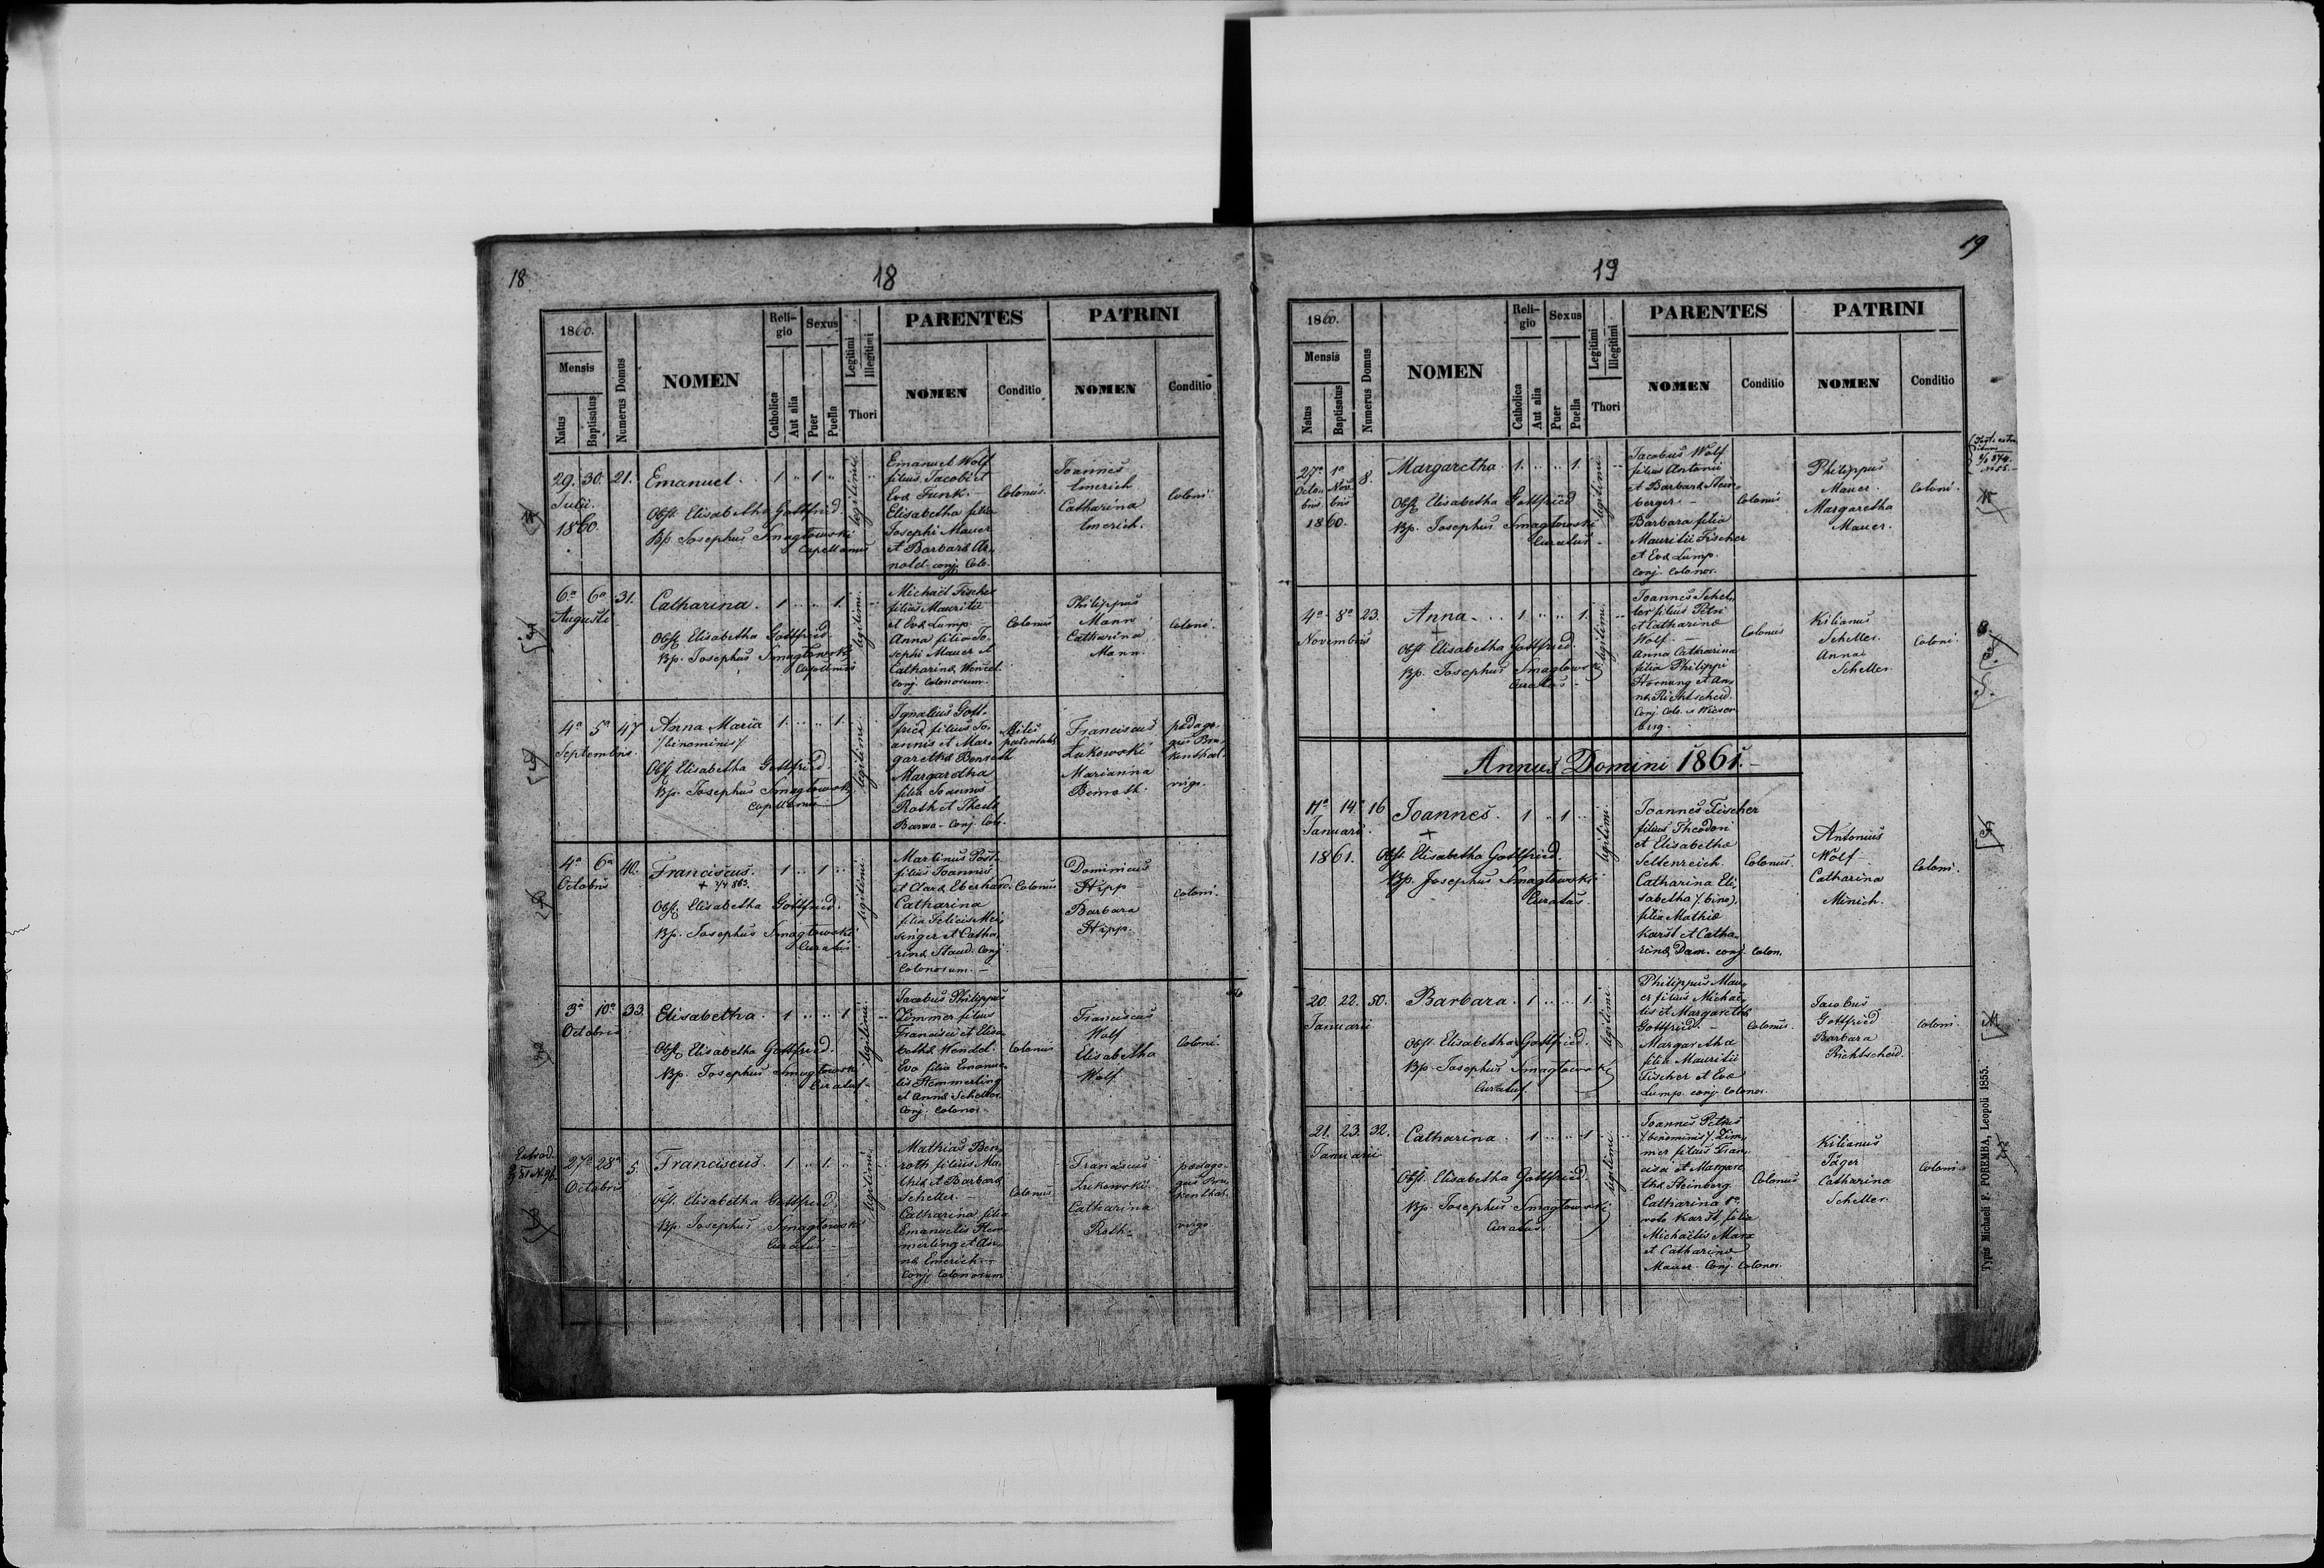 18
18
1860.
Mensis
Natus
Baptisatus
Numerus Domus
NOMEN
Reli-
gio
Catholica
Aut alia
Sexus
Puer
Puella
Legitimi
Illegitimi
Thori
PARENTES
NOMEN
Conditio
PATRINI
NOMEN
Conditio
29. 30. 21.
Julii.
1860.
Emanuel. 1 " 1 "
Obst. Elisabetha Gottfried.
Bp. Josephus Smagłowski
Capellanus
legitimi.
Emanuel Wolf
filius Jacobi et
Evæ Funk.
Elisabetha filia
Josephi Mauer
et Barbaræ Ar-
nold conj. Colo.
Colonus.
Joannes
Emerich
Catharina
Emerich.
Coloni.
6a 6a 31.
Augusti
Catharina. 1 " " 1.
Obst. Elisabetha Gottfried.
Bp. Josephus Smagłowski
Capellanus
legitimi.
Michael Fischer
filius Mauritii
et Evæ Lump.
Anna filia Jo-
sephi Mauer et
Catharinæ Wendel.
Conj. Colonorum.
Colonus
Philippus
Mann
Catharina
Mann.
Coloni.
4a 5a 47
Septembris.
Anna Maria 1. " " 1.
/binominis/.
Obst. Elisabetha Gottfried.
Bp. Josephus Smagłowski
Capellanus
legitimi.
Ignatius Gott-
fried filius Jo-
annis et Mar-
garethæ Benroth
Margaretha
filia Joannis
Roth et Theck
Barwa - Conj. Colo.
Miles
patentalis
Franciscus
Łukowski
Marianna
Benroth.
pædago-
gus Bru-
kenthal.
virgo.
4a 6a 40.
Octobris
Franciscus. 1 " 1 "
+ 7/4 863.
Obst. Elisabetha Gottfried.
Bp. Josephus Smagłowski
Curatus.
legitimi.
Martinus Post-
filius Joannis
et Claræ Eberhard.
Catharina
filia Felicis Mei-
singer et Catha-
rinæ Staud. Conj.
Colonorum. -
Colonus
Dominicus
Hipp -
Barbara
Hipp.
Coloni.
3a 10a 33.
Octobris
Elisabetha. 1 " " 1
Obst. Elisabetha Gottfried.
Bp. Josephus Smagłowski
Curatus.
legitimi.
Jacobus Philippus
Zimmer filius
Francisci et Elisa-
bethæ Wendel.
Eva filia Emanue-
lis Hemmerling
et Annæ Scheller.
Conj. Colonor. -
Colonus
Franciscus
Wolf
Elisabetha
Wolf.
Coloni.
27a 28a 5.
Octobris
Franciscus. 1 " 1. "
Obst. Elisabetha Gottfried.
Bp. Josephus Smagłowski
Curatus -
legitimi.
Mathias Ben-
roth filius Ma-
thiæ et Barbaræ
Scheller. -
Catharina filia
Emanuelis Hem-
merling et An-
næ Emerich. -
Conj. Colonorum
Colonus
Franciscus
Łukowski.
Catharina
Roth.
pædago-
gus Bru-
kenthal.
virgo
19
19
1860.
Mensis
Natus
Baptisatus
Numerus Domus
NOMEN
Reli-
gio
Catholica
Aut alia
Sexus
Puer
Puella
Legitimi
Illegitimi
Thori
PARENTES
NOMEN
Conditio
PATRINI
NOMEN
Conditio
27a 1a 8.
Octo- Nov.
bris. bris
1860.
Margaretha. 1. " " 1.
Obst. Elisabetha Gottfried
Bp. Josephus Smagłowski
Curatus -
legitimi.
Jacobus Wolf
filius Antonii
et Barbaræ Stein-
berger. -
Barbara filia
Mauritii Fischer
et Evæ Lump.
Conj. Colonor.
Colonus
Philippus
Mauer.
Margaretha
Mauer.
Coloni.
4a 8a 23.
Novembris
Anna. 1 " " 1.
Obst. Elisabetha Gottfried.
Bp. Josephus Smagłowski
Curatus -
legitimi.
Joannes Schel-
ler filius Petri
et Catharinæ
Wolf. -
Anna Catharina
filia Philippi
Hornung et An-
næ Richtscheid.
Conj. Colo. a Wiesen-
berg.
Colonus
Kilianus
Scheller.
Anna
Scheller
Coloni.
Annus Domini 1861. -
11a 14a 16
Januarii.
1861.
Joannes. 1 " 1 "
+
Obst. Elisabetha Gottfried.
Bp. Josephus Smagłowski
Curatus.
legitimi.
Joannes Fischer
filius Theodori
et Elisabethæ
Seltenreich.
Catharina Eli-
sabetha /bino/.
filia Mathiæ
Karst et Catha-
rinæ Dam. conj. Colon.
Colonus.
Antonius
Wolf
Catharina
Minich.
Coloni.
20. 22. 50.
Januarii
Barbara. 1 " " 1.
Obst. Elisabetha Gottfried.
Bp. Josephus Smagłowski
Curatus.
legitimi.
Philippus Mau-
er filius Michae-
lis et Margarethæ
Gottfried. -
Margaretha
filia Mauritii
Fischer et Evæ
Lump. conj. Colonor.
Colonus.
Jacobus
Gottfried
Barbara
Richtscheid.
Coloni.
21. 23. 32.
Januarii
Catharina. 1 " " 1
Obst. Elisabetha Gottfried.
Bp. Josephus Smagłowski
Curatus.
legitimi.
Joannes Petrus
/binominis/. Zim-
mer filius Fran-
cisci et Margare-
thæ Steinberg.
Catharina 1o
voto Karst, filia
Michaelis Marx
et Catharinæ
Mauer. Conj. Colonor.
Colonus
Kilianus
Jäger
Catharina
Scheller.
Coloni.
Typis Michaeli F. POREMBA, Leopoli 1855.